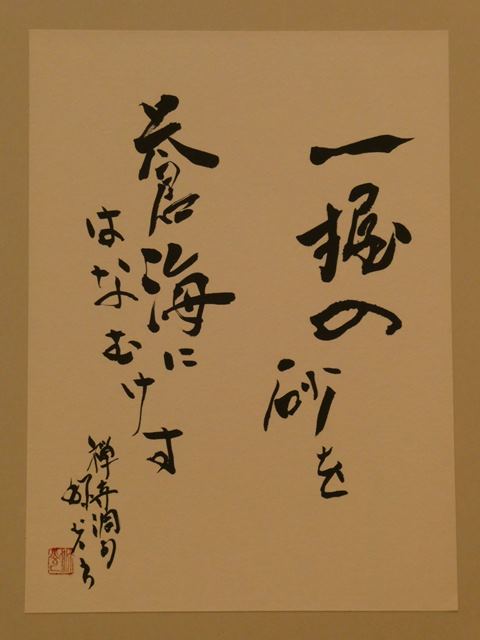 一握の
砂を
蒼海に
はなむけす
禅寺洞句